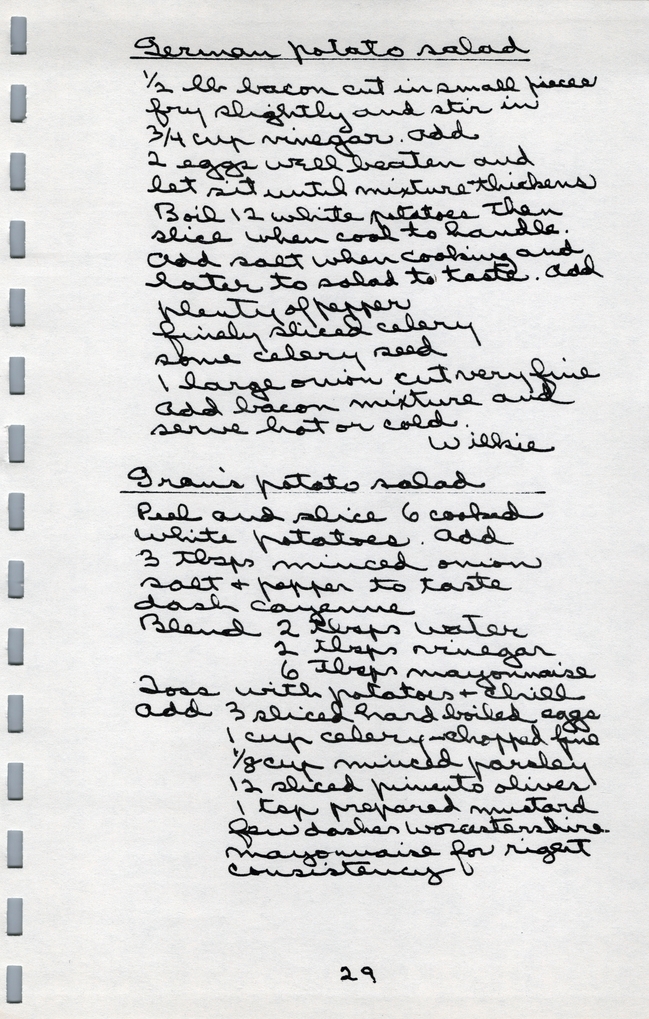 German potato salad
1/2 lb bacon cut in small pieces
fry slightly and stir in
3/4 cup vinegar. add
2 eggs well beaten and
let sit until mixture thickens
Boil 12 white potatoes then
slice when cool to handle.
add salt when cooking and
later to salad to taste. add
plenty of pepper
finely sliced celery
some celery seed
1 large onion cut very fine
add bacon mixture and
serve hot or cold.
Willsie
Gran's potato salad
Peel and slice 6 cooked
white potatoes. add
3 tbsps minced onion
salt + pepper to taste
dash cayenne
Blend 2 tbsps water
2 tbsps vinegar
6 tbsps mayonnaise
Toss with potatoes + chill
add 3 sliced hard boiled eggs
1 cup celery-chopped fine
1/8 cup minced parsley
12 sliced pimento olives
1 tsp prepared mustard
few dashes worcestershire
mayonnaise for right
consistency
29